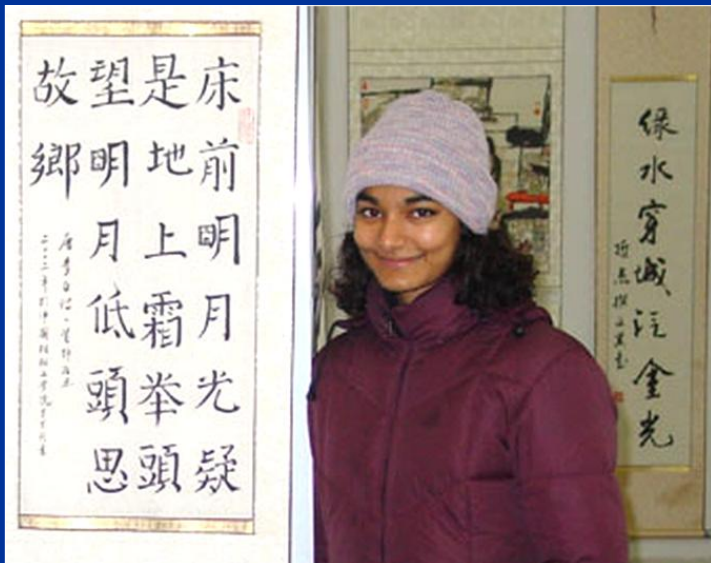 床前明月光疑
是地上霜举頭
望明月低頭思
故鄉
唐李白
绿水穿城泛金光